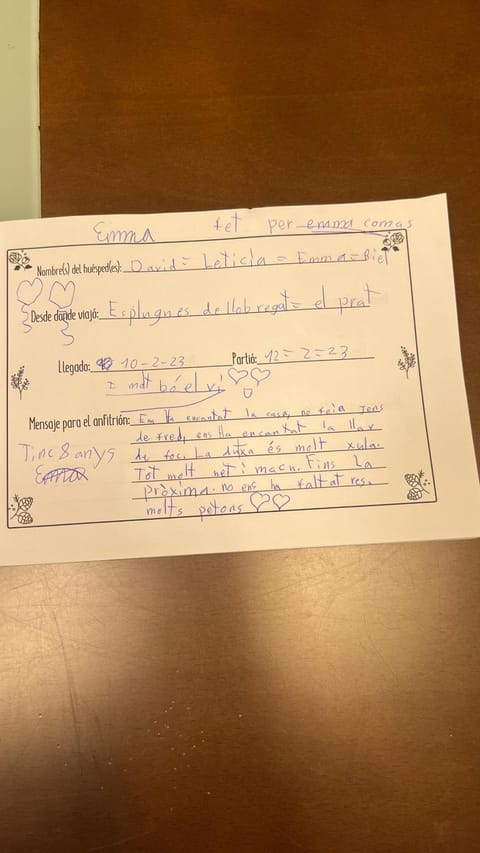 Emma fet per emma comas
Nombre(s) del huésped(es): David = Leticia = Emma = Biel
Desde dónde viajó: Esplugues de llobregat = el prat
Llegada: 10-2-23 Partió: 12=2=23
i molt bó el vi
Mensaje para el anfitrión: Em Ha encantat la casa, no feia gens
de fred, ens Ha encantat la llar
de foc. La dutxa és molt xula.
Tinc 8 anys
Tot molt net i macu. Fins La
Emma
pròxima. no ens ha faltat res.
molts petons